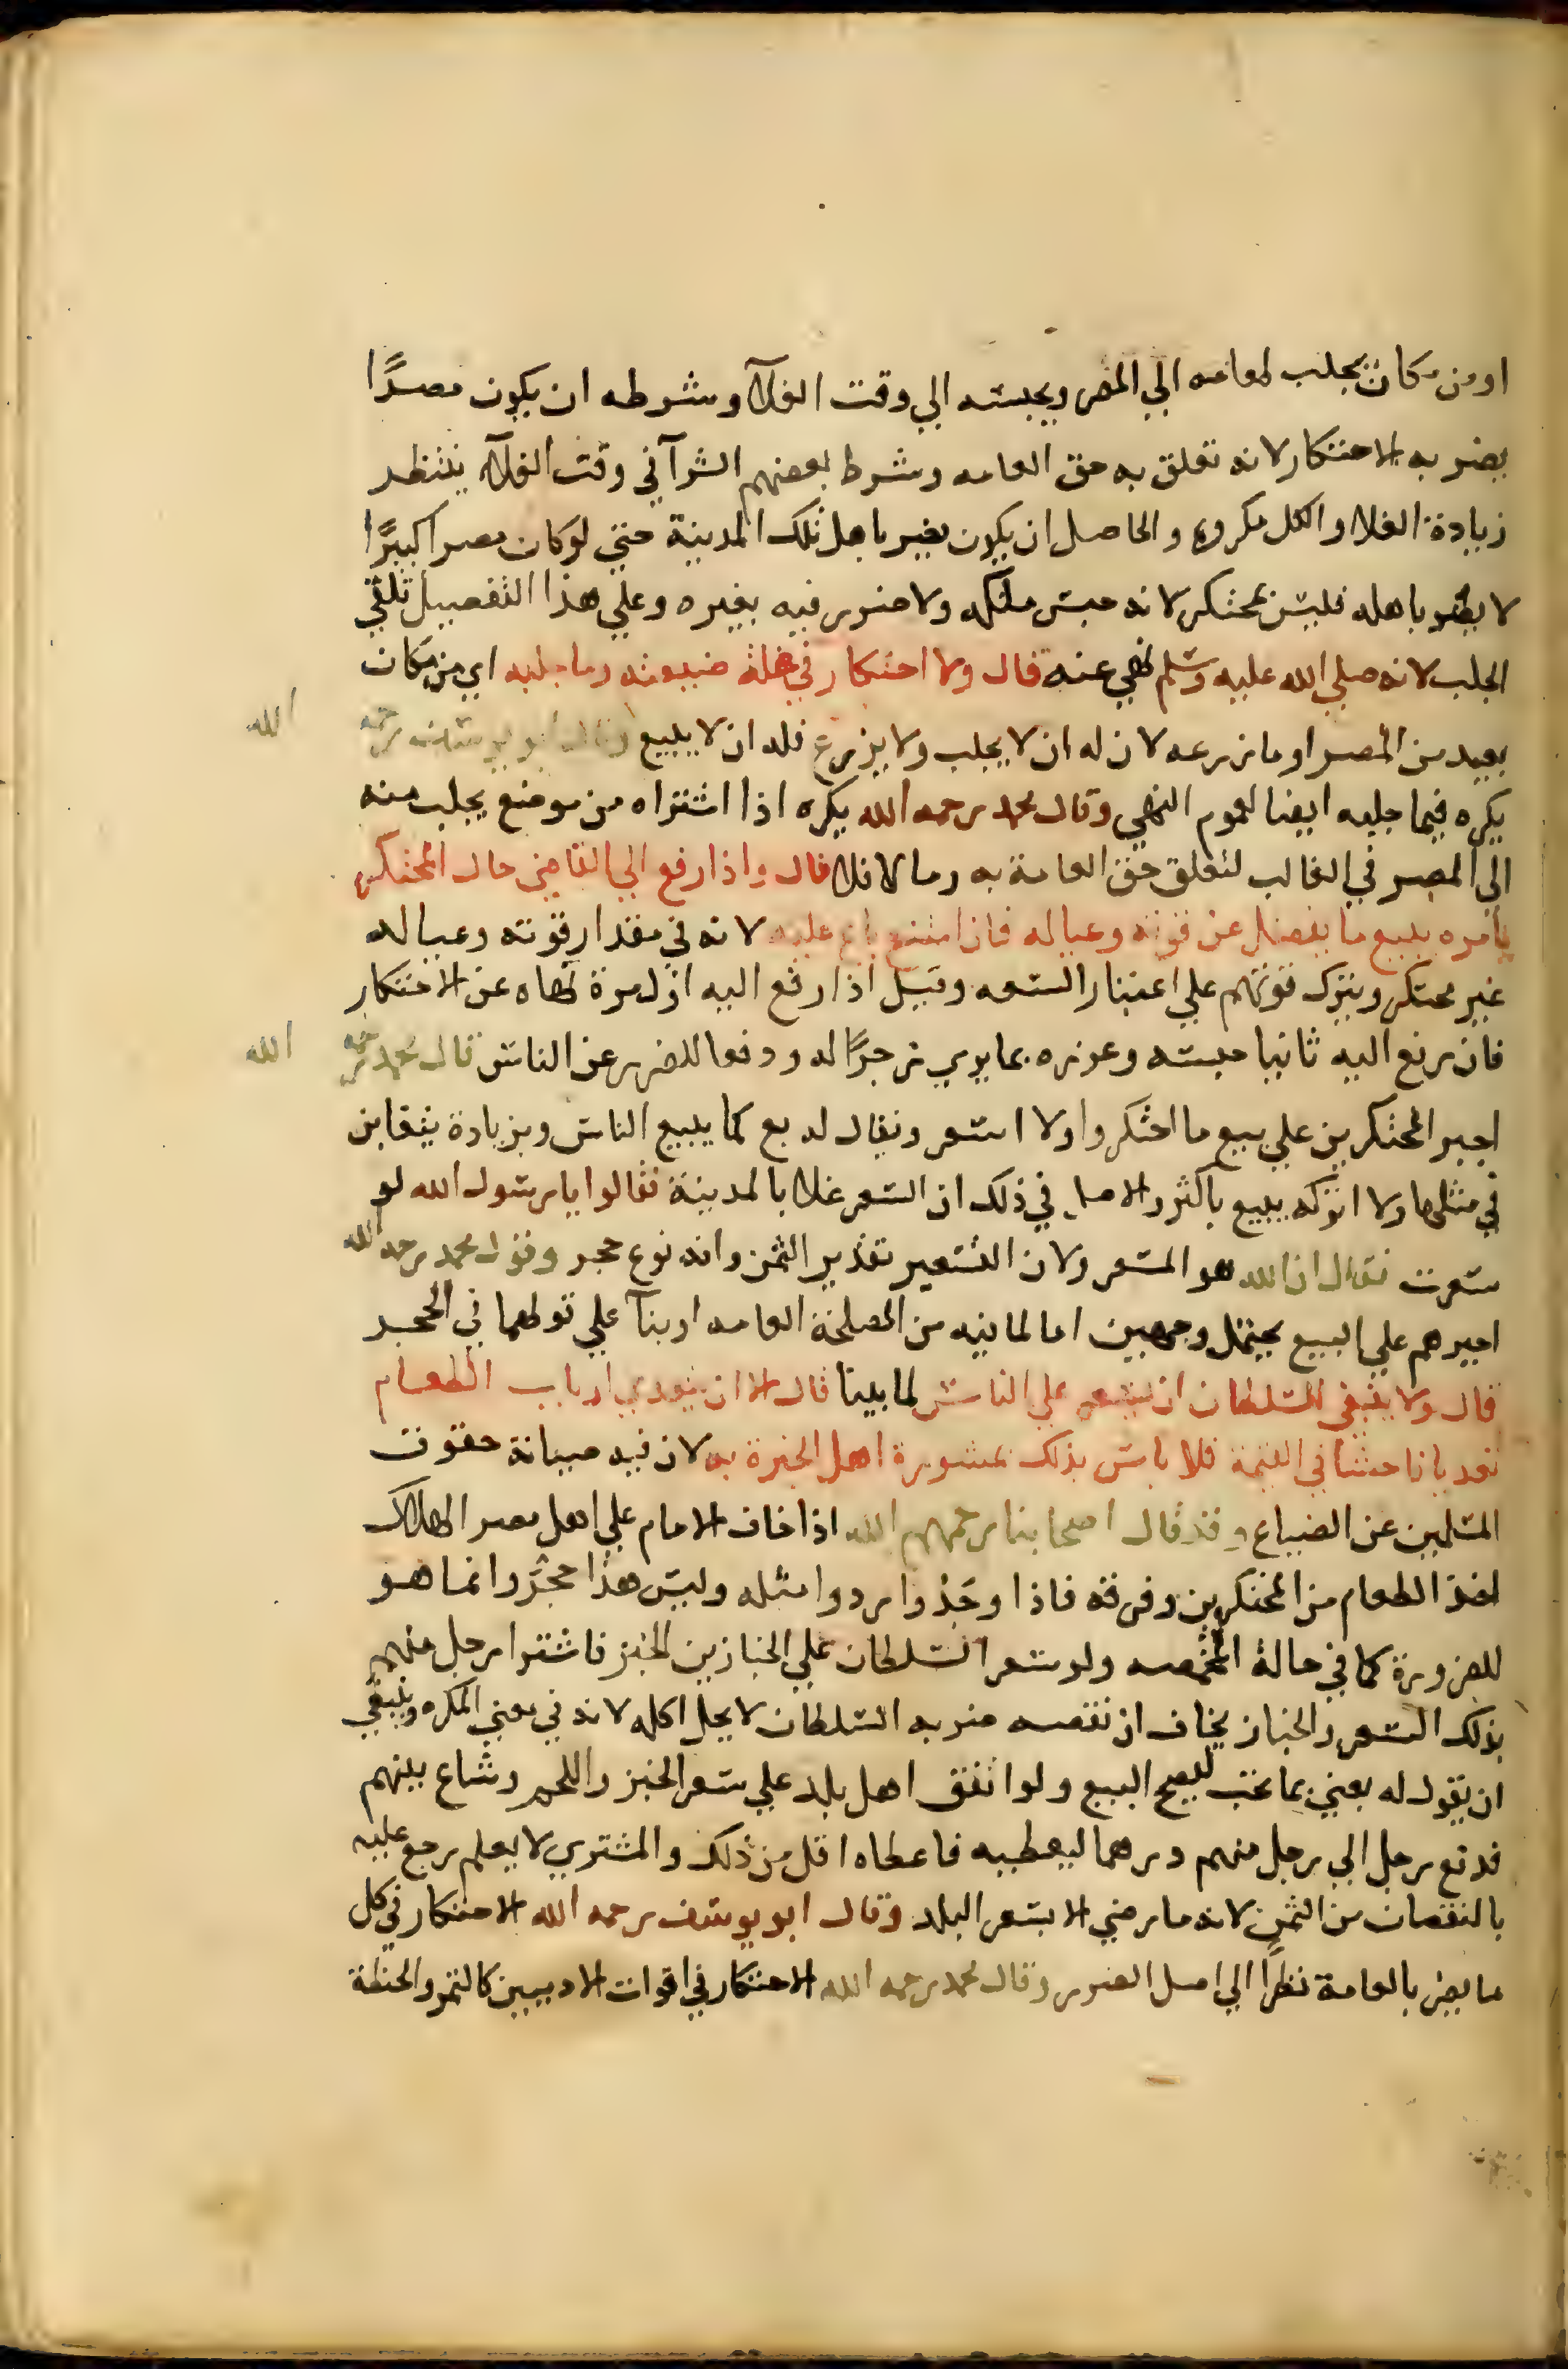 او من مكان يجلب طعامه الي المصر ويحبسه الي وقت الغلآ وشرطه ان يكون مصرًا
يضر به الاحتكار لانه تعلق به حق العامه وشرط بعضهم الشرآ في وقت الغلآ ينتظر
زيادة الغلا والكل مكروه والحاصل ان يكون يضر باهل تلك المدينة حتي لو كان مصرا كبيرًا
لا يضر باهله فليس بمحتكر لانه حبس ملكه ولا ضرر فيه بغيره وعلي هذا التفصيل تلقي
الجلب لانه صلي الله عليه وسلم نهي عنه قال ولا احتكار في غلة ضيعته وما جلبه اي من مكان
بعيد من المصر او ما زرعه لان له ان لا يجلب ولا يزرع فله ان لا يبيع وقال ابو يوسف رحمه الله
يكره فيما جلبه ايضا لعموم النهي وقال محمد رحمه الله يكره اذا اشتراه من موضع يجلب منه
الي المصر في الغالب لتعلق حق العامة به وما لا فلا قال واذا رفع الي القاضي حال المحتكر
يامره ببيع ما يفضل عن قوته وعياله فان امتنع باع عليه لانه في مقدار قوته وعياله
غير محتكر ويترك قوتهم علي اعتبار السعه وقيل اذا رفع اليه اول مرة نهاه عن الاحتكار
فان رفع اليه ثانيا حبسه وعزره بما يري زجرًا له ودفعا للضرر عن الناس قال محمد رحمه الله
اجبر المحتكرين علي بيع ما احتكروا ولا اسعر ويقال له بع كما يبيع الناس وبزيادة يتغابن
في مثلها ولا اتركه يبيع باكثر والاصل في ذلك ان السعر غلا بالمدينة فقالوا يا رسول الله لو
سعرت فقال ان الله هو المسعر ولان التسعير تقدير الثمن وانه نوع حجر وقول محمد رحمه الله
اجبرهم علي البيع يحتمل وجهين اما لما فيه من المصلحة العامه او بنآ علي قولهما في الحجر
قال ولا ينبغي للسلطان ان يسعر علي الناس لما بينا قال الا ان يتعدي ارباب الطعام
تعديا فاحشا في القيمة فلا باس بذلك بمشورة اهل الخبرة به لان فيه صيانة حقوق
المسلمين عن الضياع وقد قال اصحابنا رحمهم الله اذا خاف الامام علي اهل مصر الهلاك
اخذ الطعام من المحتكرين وفرقه فاذا وجدوا ردوا مثله وليس هذا حجرًا وانما هو
للضرورة كما في حالة المخمصه ولو سعر السلطان علي الخبازين الخبز فاشترا رجل منهم
بذلك السعر والخباز يخاف ان نقصه ضربه السلطان لا يحل اكله لانه في معني المكره وينبغي
ان يقول له بعني بما تحب ليصح البيع ولو اتفق اهل بلد علي سعر الخبز واللحم وشاع بينهم
فدفع رجل الي رجل منهم درهما ليعطيه فاعطاه اقل من ذلك والمشتري لا يعلم رجع عليه
بالنقصان من الثمن لانه ما رضي الا بسعر البلد وقال ابو يوسف رحمه الله الاحتكار في كل
ما يضر بالعامة نظرًا الي اصل الضرر وقال محمد رحمه الله الاحتكار في اقوات الادميين كالتمر والحنطة